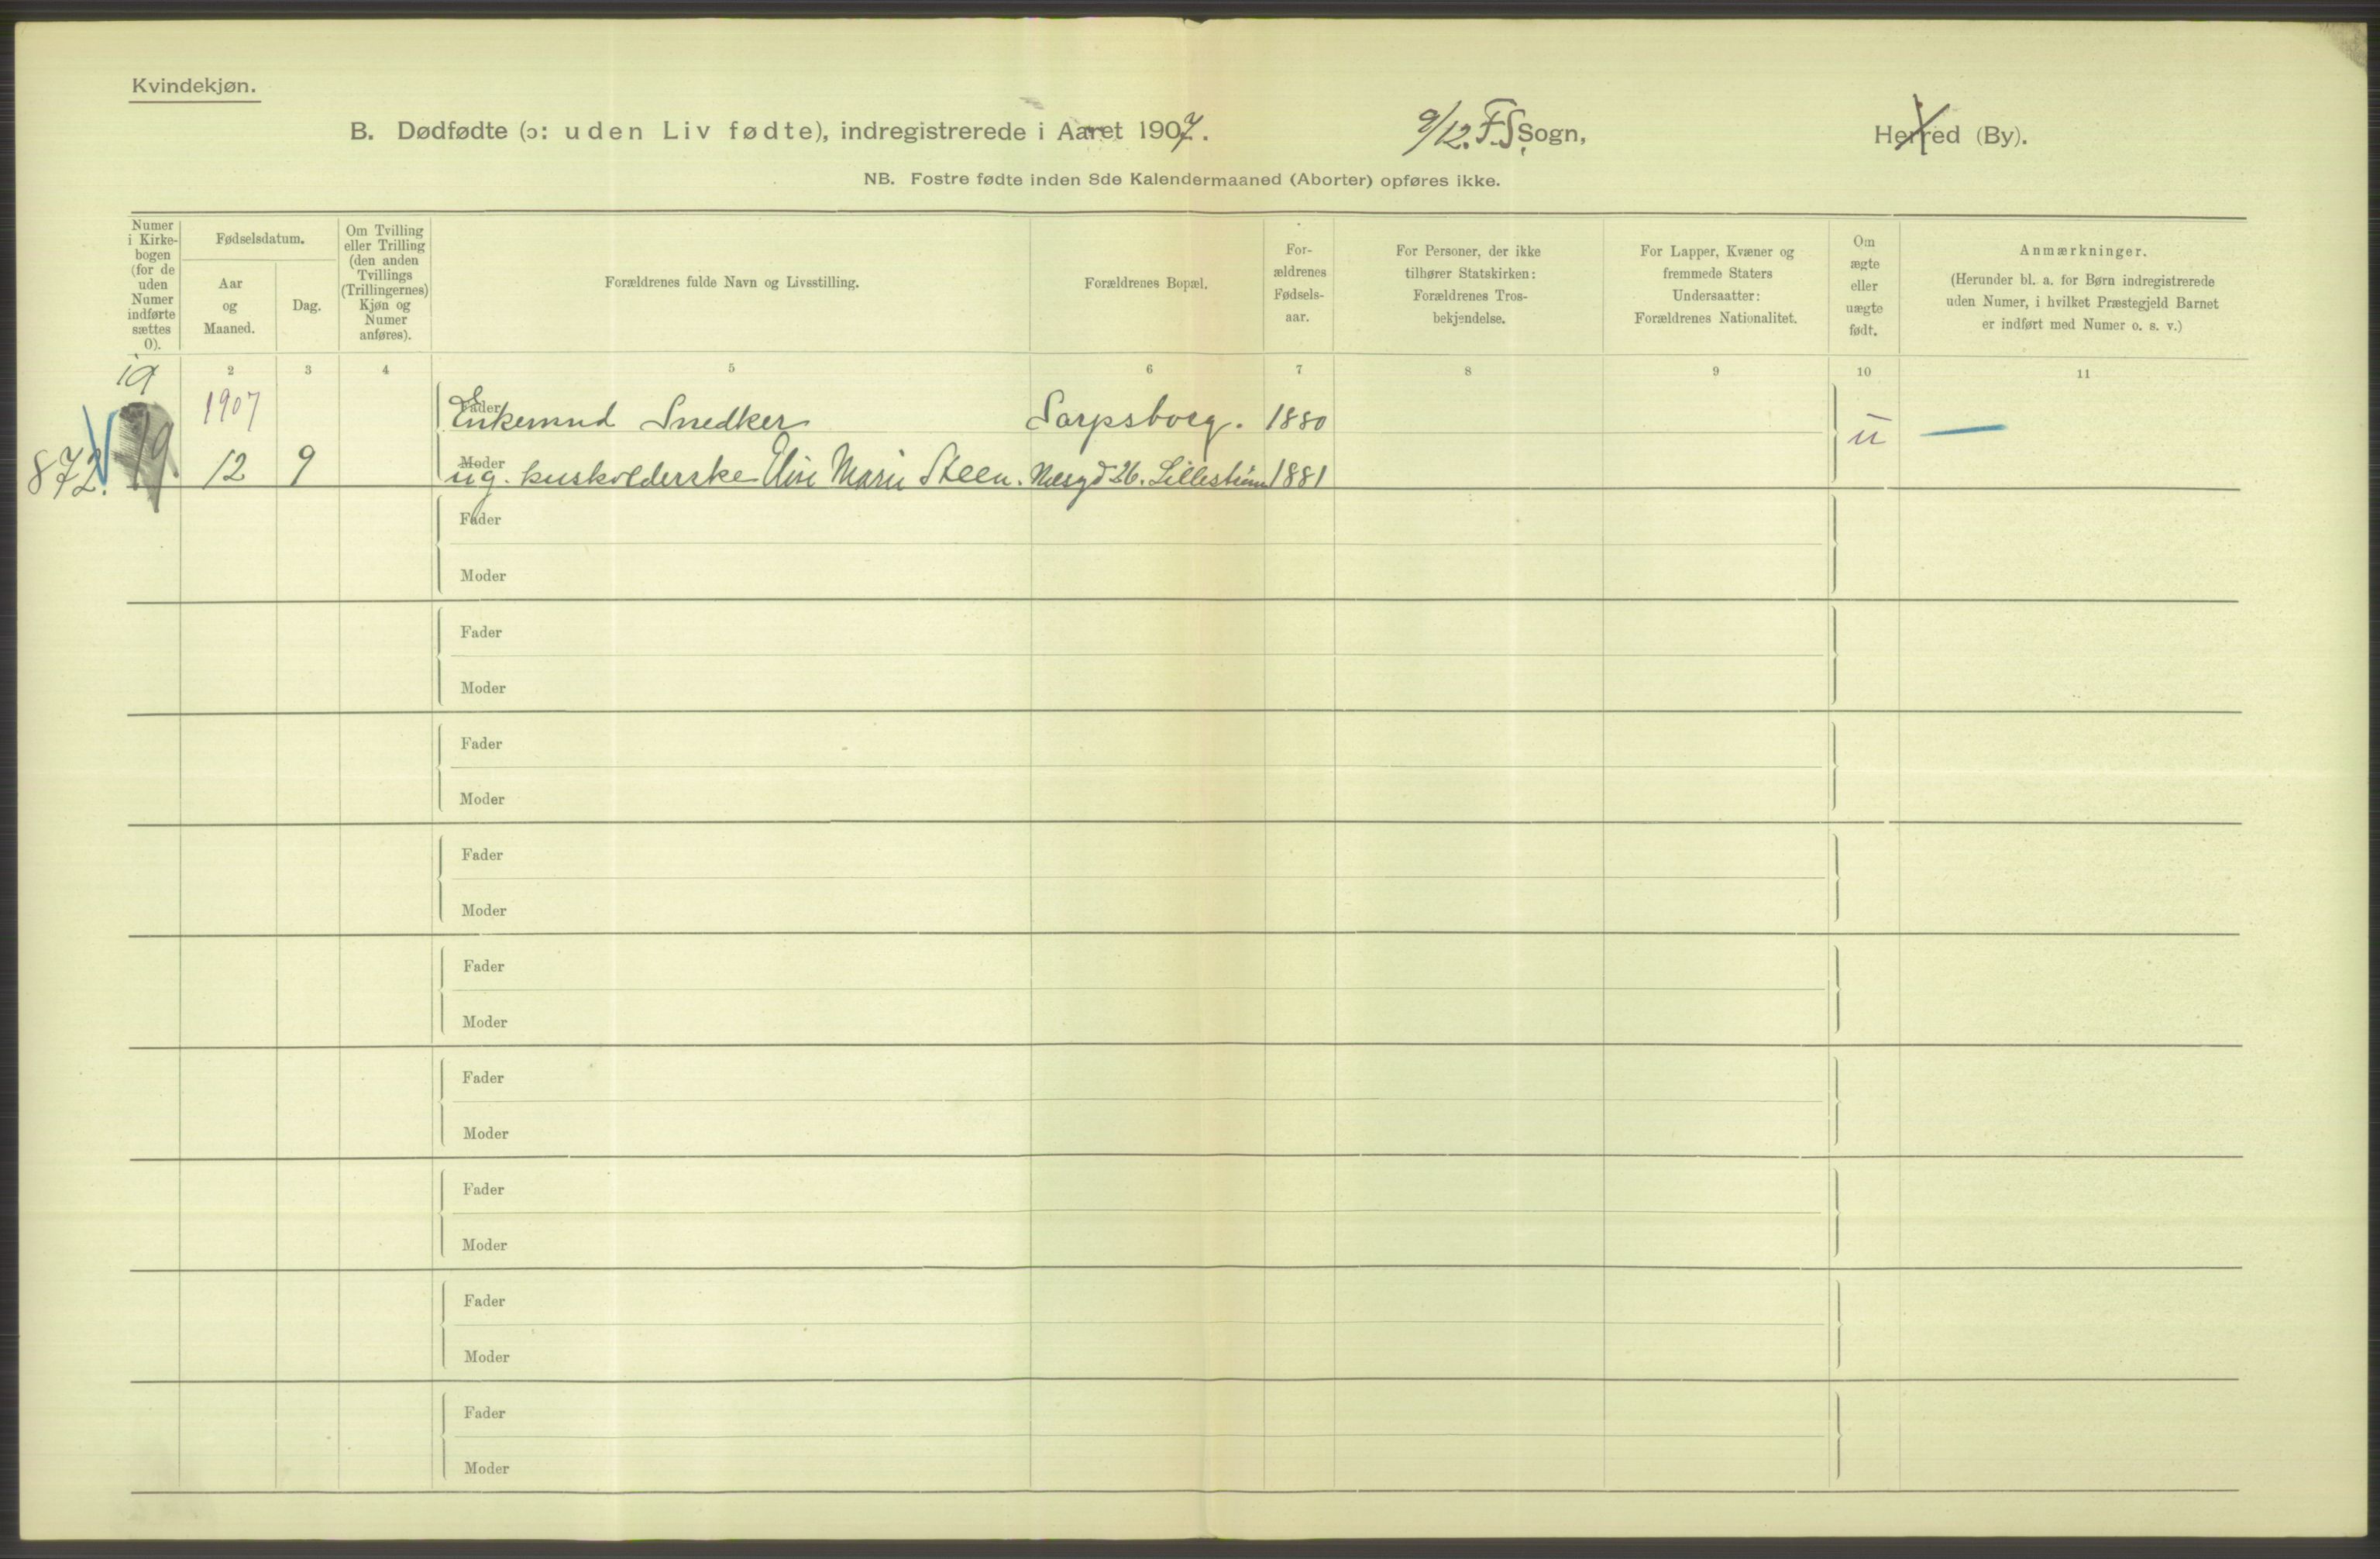 Kvindekjøn.
B. Dødfødte (ɔ: uden Liv fødte), indregistrerede i Aaret 1907. 9/12. F.S. Sogn, Herred (By).
NB. Fostre fødte inden 8de Kalendermaaned (Aborter) opføres ikke.
Numer i Kirke-bogen (for de uden Numer indførte sættes 0).
Fødselsdatum.
Aar og Maaned.
Dag.
Om Tvilling eller Trilling (den anden Tvillings (Trillingernes) Kjøn og Numer anføres).
Forældrenes fulde Navn og Livsstilling.
Forældrenes Bopæl.
For-ældrenes Fødsels-aar.
For Personer, der ikke tilhører Statskirken: Forældrenes Tros-bekjendelse.
For Lapper, Kvæner og fremmede Staters Undersaatter: Forældrenes Nationalitet.
Om ægte eller uægte født.
Anmærkninger.
(Herunder bl. a. for Børn indregistrerede uden Numer, i hvilket Præstegjeld Barnet er indført med Numer o. s. v.)
2 3 4 5 6 7 8 9 10 11
19
1907 Fader Enkemand Snedker Sarpsborg. 1880
872. 19. 12 9 Moder ug. husholderske Elise Marie Steen. 26. Lillestrøm 1881 u
Fader
Moder
Fader
Moder
Fader
Moder
Fader
Moder
Fader
Moder
Fader
Moder
Fader
Moder
Fader
Moder
Fader
Moder